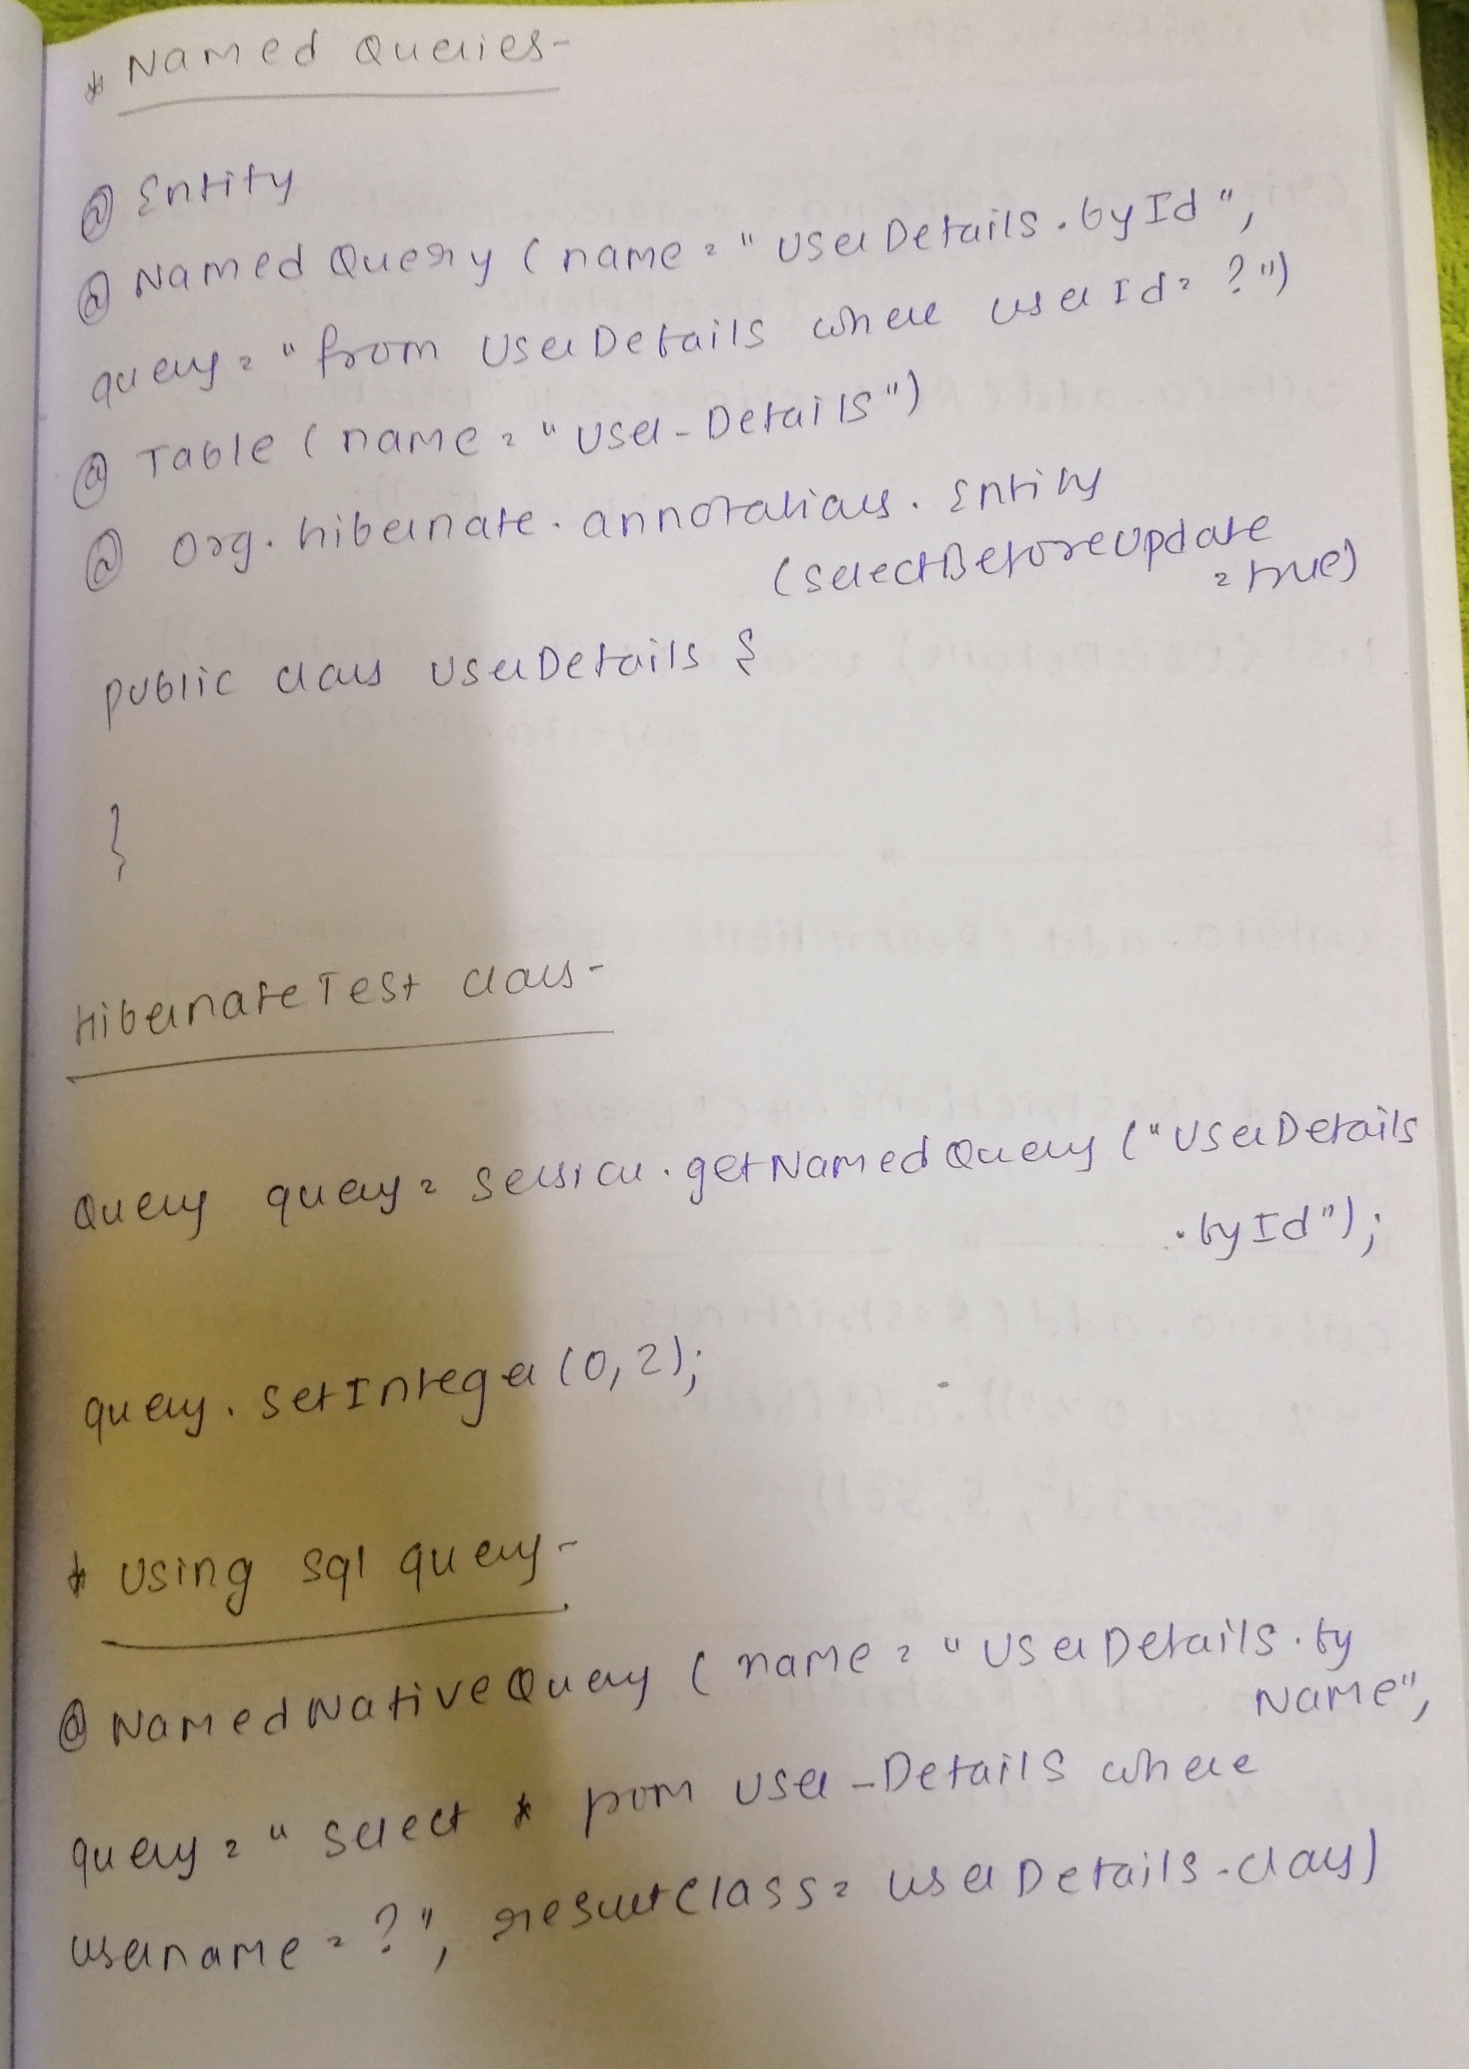 * Named Queries-
@ Entity
@ Named Query (name = "UserDetails.byId",
query = "from UserDetails where userId = ?")
@ Table (name = "User-Details")
@ Org.hibernate.annotations.Entity
(selectBeforeUpdate
= true)
public class UserDetails {
}
HibernateTest class-
Query query = session.getNamedQuery ("UserDetails
.byId");
query.setInteger (0,2);
* Using sql query-
@ NamedNativeQuery (name = "UserDetails.by
Name",
query = "select * from User-Details where
username = ?", resultClass = userDetails.class)